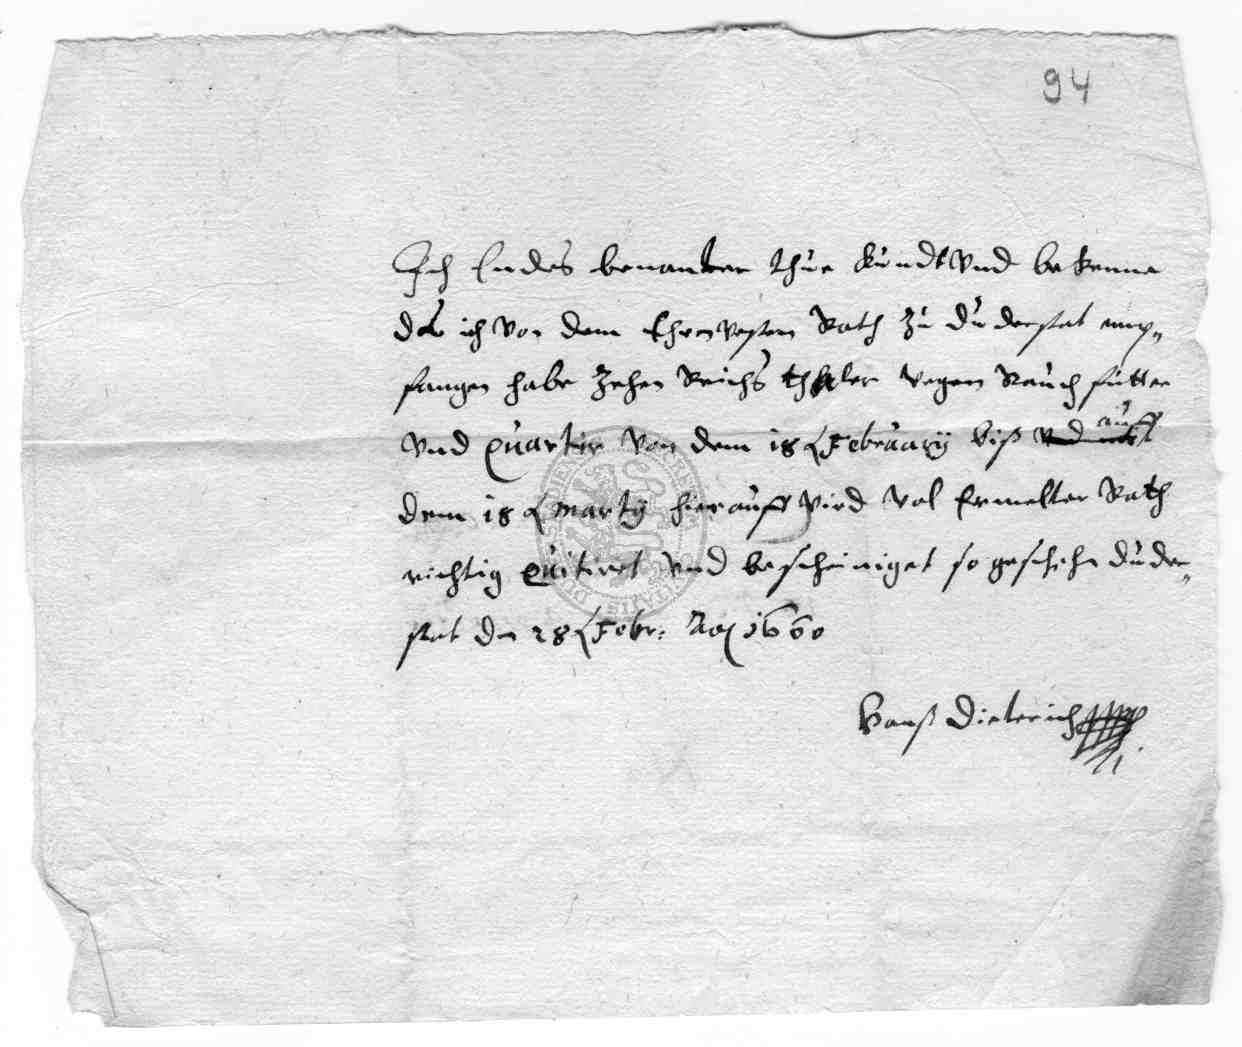 94
Ich Endes benanter thue kundt vnd bekenne
das ich von dem Ehrnvesten Rath zu duderstat emp„
fangen habe Zehen Reichs thaler wegen Rauch futter
vnd quartir von dem 18 February biß auff
dem 18 marty hierauff wird wol Ermelter Rath
richtig quitiret vnd bescheiniget so geschehn duder„
stat den 28 Febr: Ao 1660
Hanß Dieterich